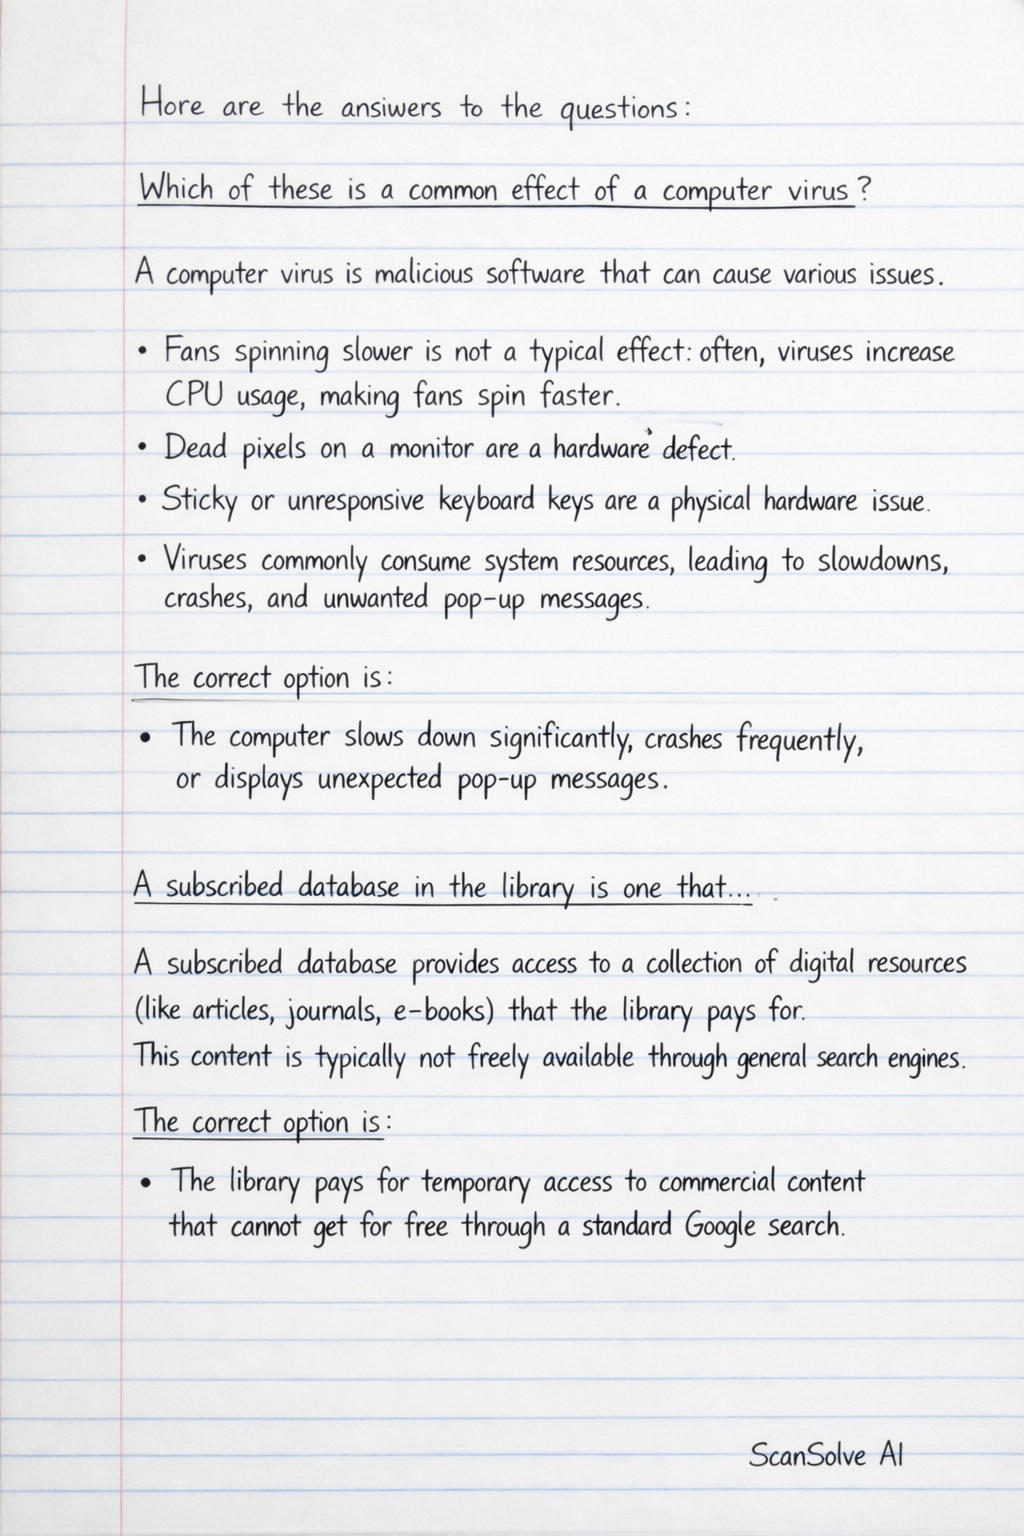 Hore are the ansiwers to the questions:
Which of these is a common effect of a computer virus?
A computer virus is malicious software that can cause various issues.
• Fans spinning slower is not a typical effect: often, viruses increase
CPU usage, making fans spin faster.
• Dead pixels on a monitor are a hardware defect.
• Sticky or unresponsive keyboard keys are a physical hardware issue.
• Viruses commonly consume system resources, leading to slowdowns,
crashes, and unwanted pop-up messages.
The correct option is:
• The computer slows down significantly, crashes frequently,
or displays unexpected pop-up messages.
A subscribed database in the library is one that...
A subscribed database provides access to a collection of digital resources
(like articles, journals, e-books) that the library pays for.
This content is typically not freely available through general search engines.
The correct option is:
• The library pays for temporary access to commercial content
that cannot get for free through a standard Google search.
ScanSolve AI